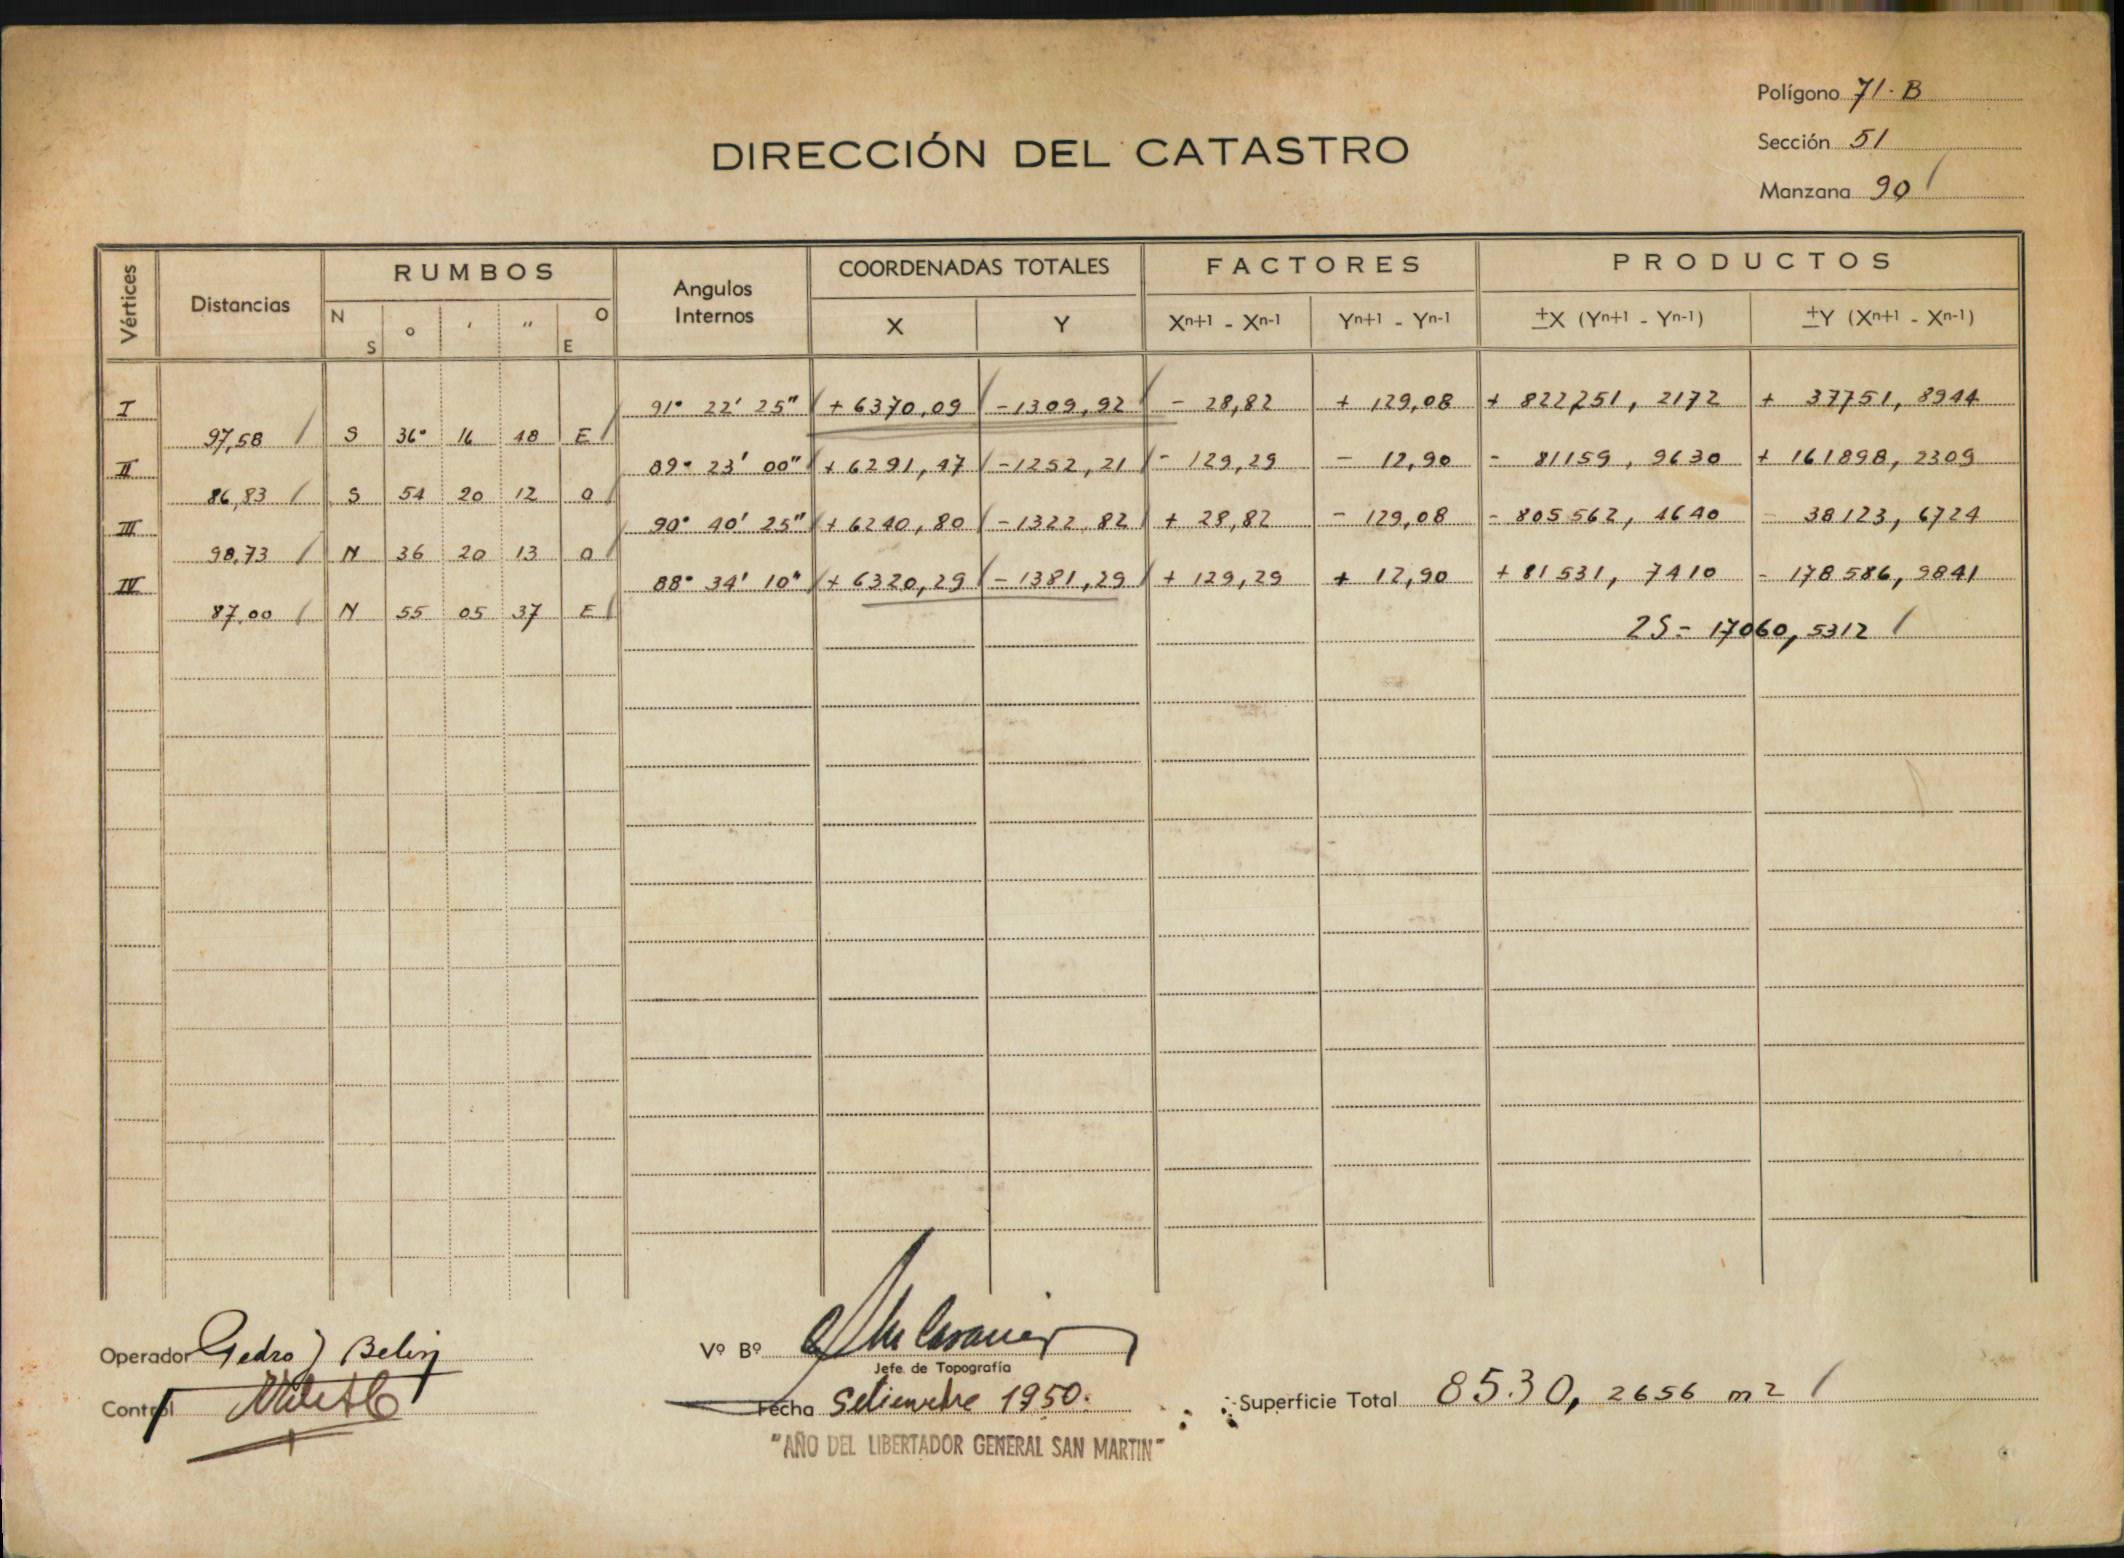 Polígono 71-B
DIRECCIÓN DEL CATASTRO
Sección 51
Manzana 90
Vértices Distancias RUMBOS Angulos Internos COORDENADAS TOTALES FACTORES PRODUCTOS
N S ° ' " O E X Y Xn+1 - Xn-1 Yn+1 - Yn-1 ±X (Yn+1 - Yn-1) ±Y (Xn+1 - Xn-1)
I 91° 22' 25" + 6370,09 - 1309,92 - 28,82 + 129,08 + 822251, 2172 + 37751, 8944
97,58 S 36° 16 48 E
II 89° 23' 00" + 6291,47 - 1252,21 - 129,29 - 12,90 - 81159, 9630 + 161898, 2309
86,83 S 54 20 12 O
III 90° 40' 25" + 6240,80 - 1322,82 + 28,82 - 129,08 - 805562, 4640 - 38123, 6724
98,73 N 36 20 13 O
IV 88° 34' 10" + 6320,29 - 1381,29 + 129,29 + 12,90 + 81531, 7410 - 178586, 9841
87,00 N 55 05 37 E
2S = 17060, 5312
Operador Pedro J Belin
Vº Bº
Jefe de Topografía
Control
Fecha Setiembre 1950.
Superficie Total 8530, 2656 m2
"AÑO DEL LIBERTADOR GENERAL SAN MARTIN"